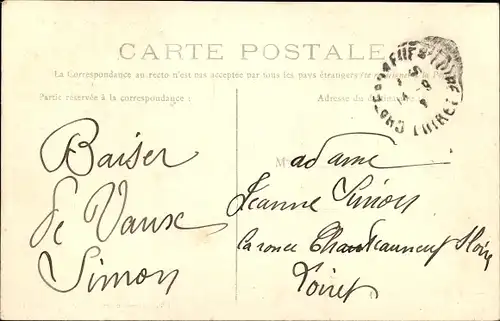 CARTE POSTALE
La Correspondance au recto n'est pas acceptée par tous les pays étrangers (se renseigner à la Poste)
Partie réservée à la correspondance :
Adresse du destinataire
Baiser
de Vaux
Simon
Madame
Jeanne Simon
la ronce Chauteauneuf s Loire
Loiret
LOIRET